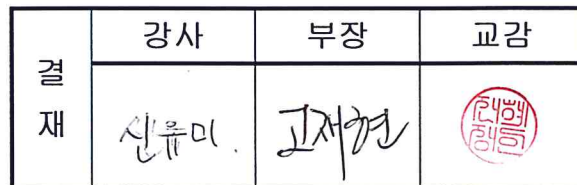 결재
강사 부장 교감
신류미. 고재현